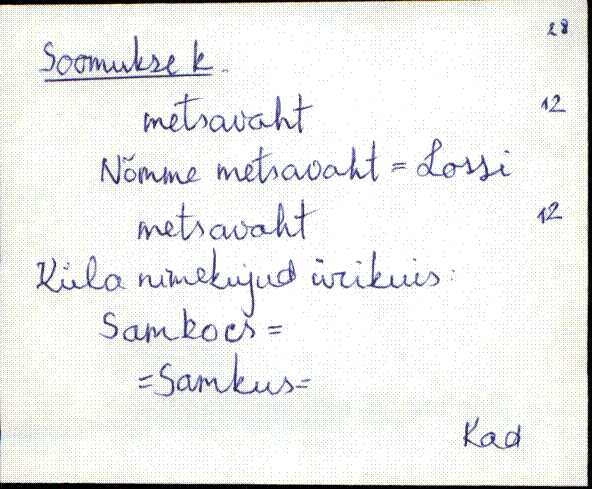 28
Soomukse k.
metsavaht 12
Nõmme metsavaht = Lossi
metsavaht 12
Küla nimekujud ürikuis:
Samkocs =
= Samkus =
Kad